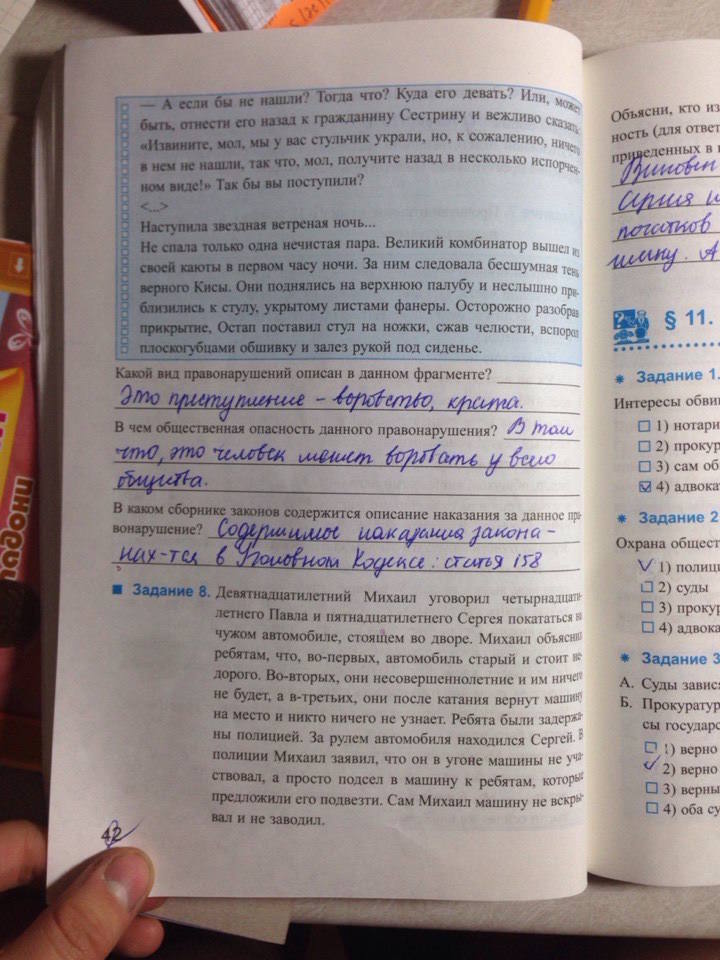 — А если бы не нашли? Тогда что? Куда его девать? Или, может
быть, отнести его назад к гражданину Сестрину и вежливо сказать:
«Извините, мол, мы у вас стульчик украли, но, к сожалению, ничего
в нем не нашли, так что, мол, получите назад в несколько испорчен-
ном виде!» Так бы вы поступили?
<...>
Наступила звездная ветреная ночь...
Не спала только одна нечистая пара. Великий комбинатор вышел из
своей каюты в первом часу ночи. За ним следовала бесшумная тень
верного Кисы. Они поднялись на верхнюю палубу и неслышно при-
близились к стулу, укрытому листами фанеры. Осторожно разобрав
прикрытие, Остап поставил стул на ножки, сжав челюсти, вспорол
плоскогубцами обшивку и залез рукой под сиденье.
Какой вид правонарушений описан в данном фрагменте?
Это приступление - воровство, кража.
В чем общественная опасность данного правонарушения? В том
что, это человек может воровать у всего
общества.
В каком сборнике законов содержится описание наказания за данное пра-
вонарушение? Содержимое наказания закона-
нах-тся в Головном Кодексе: статья 158
Задание 8. Девятнадцатилетний Михаил уговорил четырнадцати-
летнего Павла и пятнадцатилетнего Сергея покататься на
чужом автомобиле, стоящем во дворе. Михаил объяснил
ребятам, что, во-первых, автомобиль старый и стоит не-
дорого. Во-вторых, они несовершеннолетние и им ничего
не будет, а в-третьих, они после катания вернут машину
на место и никто ничего не узнает. Ребята были задержа-
ны полицией. За рулем автомобиля находился Сергей. В
полиции Михаил заявил, что он в угоне машины не уча-
ствовал, а просто подсел в машину к ребятам, которые
предложили его подвезти. Сам Михаил машину не вскры-
вал и не заводил.
42
Объясни, кто из
ность (для ответ
приведенных в
Виновен
Сергия
§ 11.
Задание 1.
Интересы обви
1) нотари
2) прокур
3) сам об
4) адвока
Задание 2
Охрана общест
1) полици
2) суды
3) прокур
4) адвока
Задание 3
А. Суды завися
Б. Прокуратур
сы государс
1) верно
2) верно
3) верны
4) оба су